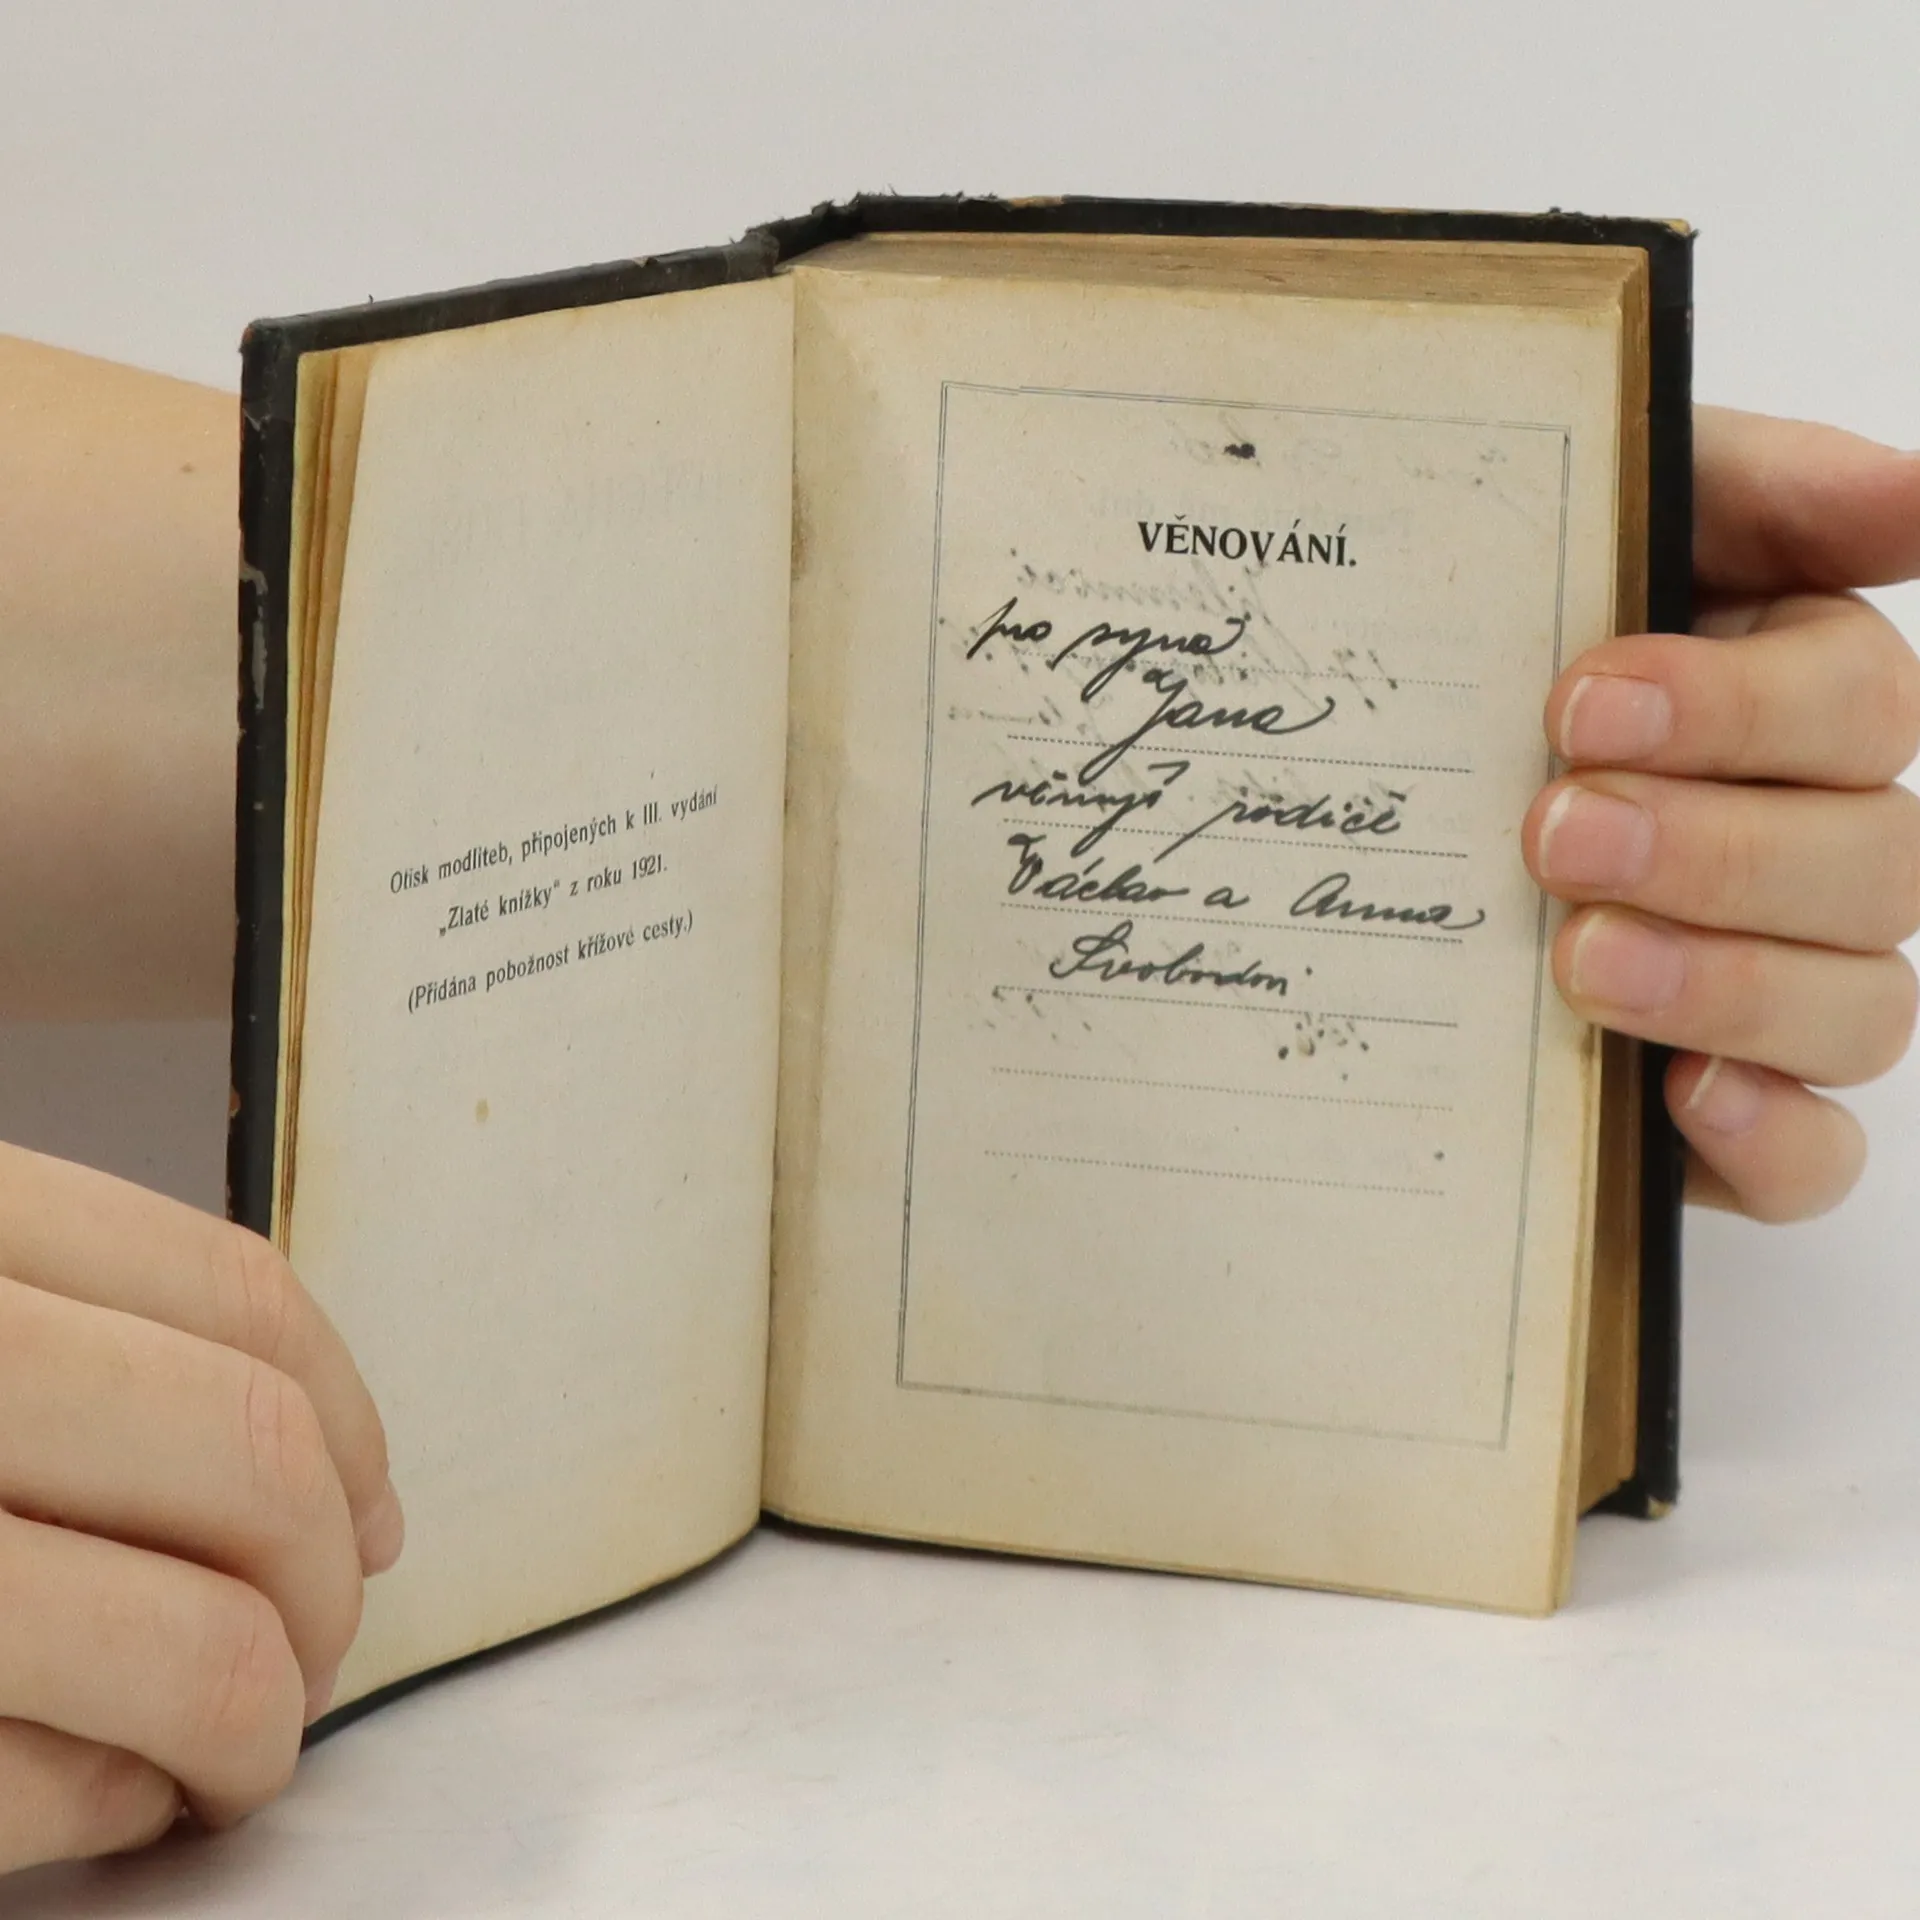 Otisk modliteb, připojených k III. vydání
„Zlaté knížky“ z roku 1921.
(Přidána pobožnost křížové cesty.)
VĚNOVÁNÍ.
pro syna
Jana
věnují rodiče
Václav a Anna
Svobodovi